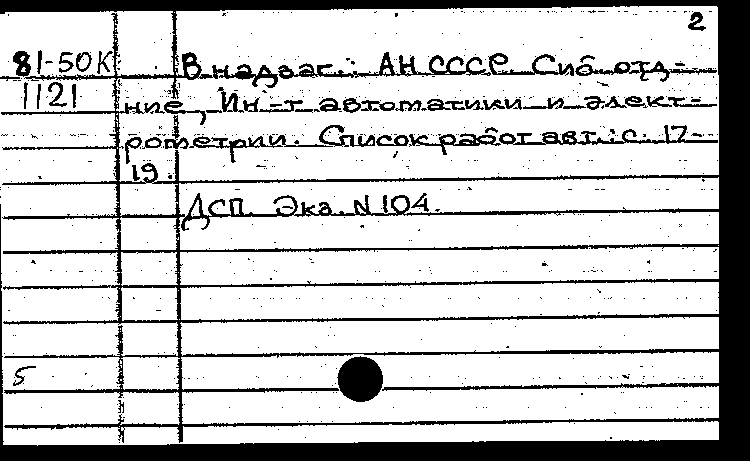 2
81-50К В надзаг.: АН СССР. Сиб. отд-
1121 ние, Ин-т автоматики и элект-
рометрии. Список работ авт.: с. 17-
19.
ДСП. Экз. N 104.
5